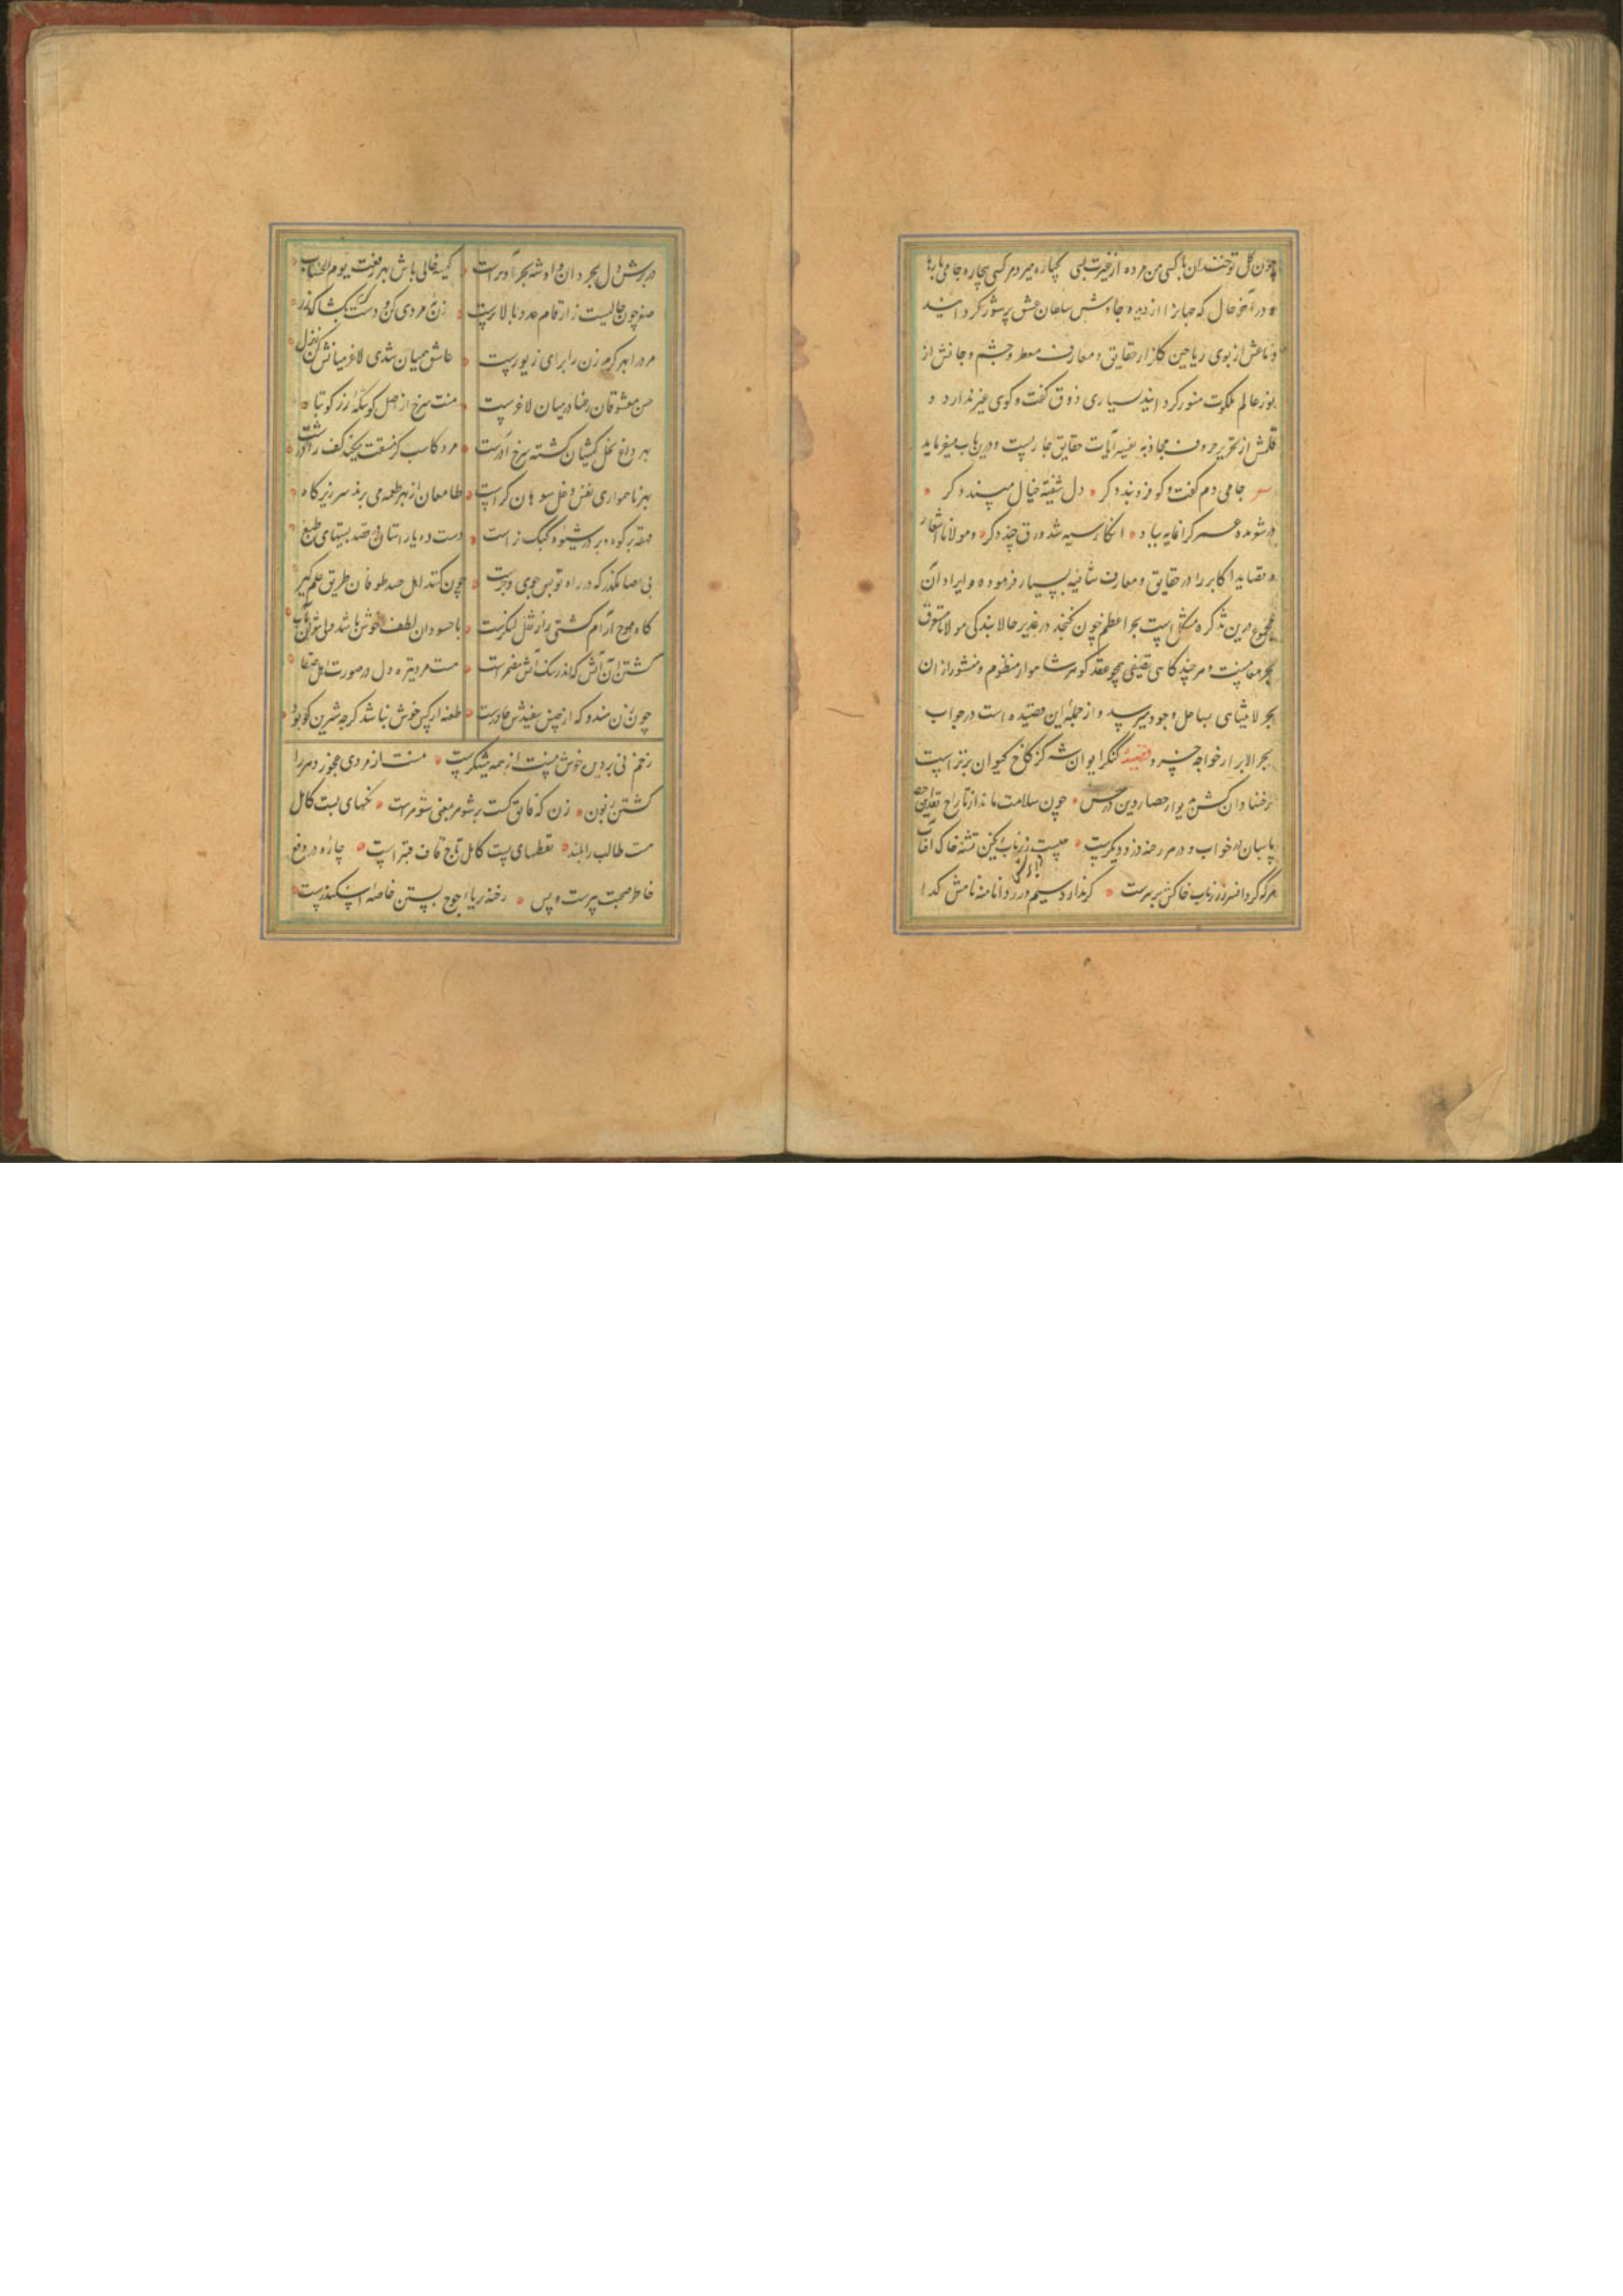 چون گل تو خندان با کسی من مرده از غیرت بسی یکباره میرد هر کسی بیچاره جامی بارها
و در آخر حال که جایز از دیده جاسوس سلطان عشق پرشور کردانید
و دماغش از بوی ریاحین کلزار حقایق و معارف معطر و چشم و جانش از
نور عالم ملکوت منور کردانید بسیاری ذوق کفت و کوی غیر ندارد و
قلمش از تحریر حروف مجاز به تفسیر آیات حقایق جاریست و درین باب میفرماید
جامی دم کفت و کو فرو بند دکر دل شیفته خیال مپسند دکر
در شعر مده عمر کرانمایه بباد انکار سیه شد ورق چند دکر و مولانا اشعار
و قصاید اکابر را در حقایق و معارف بسیار فرموده و ایراد آن
مجموع درین تذکره مشکل است بحر اعظم چون کنجد در غدیر حالا بندکی مولانا مستغرق
بحر معانیست و هر چند کاهی همچو عقد کوهر شاهوار منظوم و منثور از ان
بحر لامتناهی بساحل وجود میرسد و از جمله این قصیده است در جواب
بحر الابرار خواجه خسرو قصیده کنکر ایوان شه کز کاخ کیوان برتر است
رخنها دان کش بدیوار حصار دین درست چون سلامت ماند از تاراج نقد این حصار
پاسبان در خواب و در هر رخنه دزد دیکرست چیست زر ناب رنکین کشته خاک آفتاب
هر که کرد افسر ز زر ناب خاکش بر سرست کر ندارد سیم و زر دانا منه نامش کدا
در برش دل بحر دانش او شه بحر و برست کیسه خالی باش بهر رفعت یوم الحساب
صفر چون خالیست ز ارقام عدد بالاترست زن نه مردی کن و دست کرم بکشا که زر
مرد را بهر کرم زن را برای زیورست عاشق همیان شدی لاغر میانش کن ز بذل
حسن معشوقان رعنا در میان لاغرست منت سرخ از اصل کو سکه زر کو بتاه
بهر داغ بخل کیشان کشته سرخ آذرست مرد کاسب کز مشقت میکند کف را درشت
بهر ناهمواری نفس دغل سوهان کرست طامعان از بهر طعمه می برند سر زیر کاه
قهقه بر کوه و بر در شیوه کبک نر است دست ده با راستان در قطع پستیهای طبع
بی عصا مکذر که در راه تو بس جوی و جرست چون کنند اهل حسد طوفان طریق حلم کیر
کاه موج آرام کشتی را ز ثقل لنکرست با حسودان لطف خوش باشد ولی نتوان بآب
کشتن ان آتش که اندر سنک آتش مضمرست هست مرد تیره دل در صورت اهل صفا
چون زن هندو که از جنس سفیدش چادرست طعنه از کس خوش نباشد کرچه شیرین کو بود
زخم نی بر دیده خوش نیست از همه نیشکرست هست از مردی عجوز دهر را
کشتن زبون زن که فایق کشت بر شوهر بمعنی شوهرست نکتهای پست کامل
هست طالب را بلند نقطهای پست کامل تاج قاف قنبر است چاره در دفع
خاطر صحبت پیرست و بس رخنه بر یاجوج بستن خاصه اسکندرست